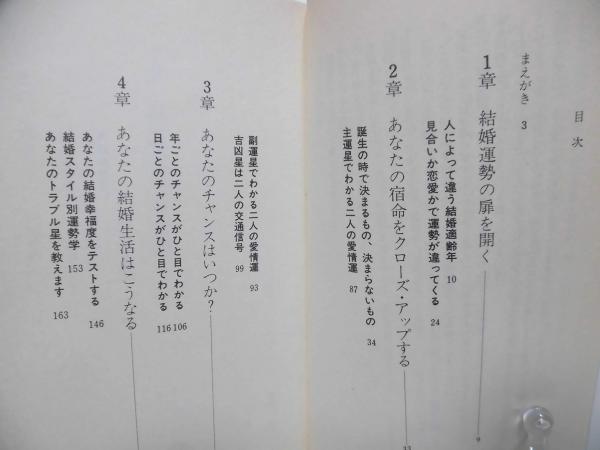 目次
まえがき 3
1章 結婚運勢の扉を開く 9
人によって違う結婚適齢年 10
見合いか恋愛かで運勢が違ってくる 24
2章 あなたの宿命をクローズ・アップする 33
誕生の時で決まるもの、決まらないもの 34
主運星でわかる二人の愛情運 87
副運星でわかる二人の愛情運 93
吉凶星は二人の交通信号 99
3章 あなたのチャンスはいつか?
年ごとのチャンスがひと目でわかる 106
日ごとのチャンスがひと目でわかる 116
4章 あなたの結婚生活はこうなる
あなたの結婚幸福度をテストする 146
結婚スタイル別運勢学 153
あなたのトラブル星を教えます 163